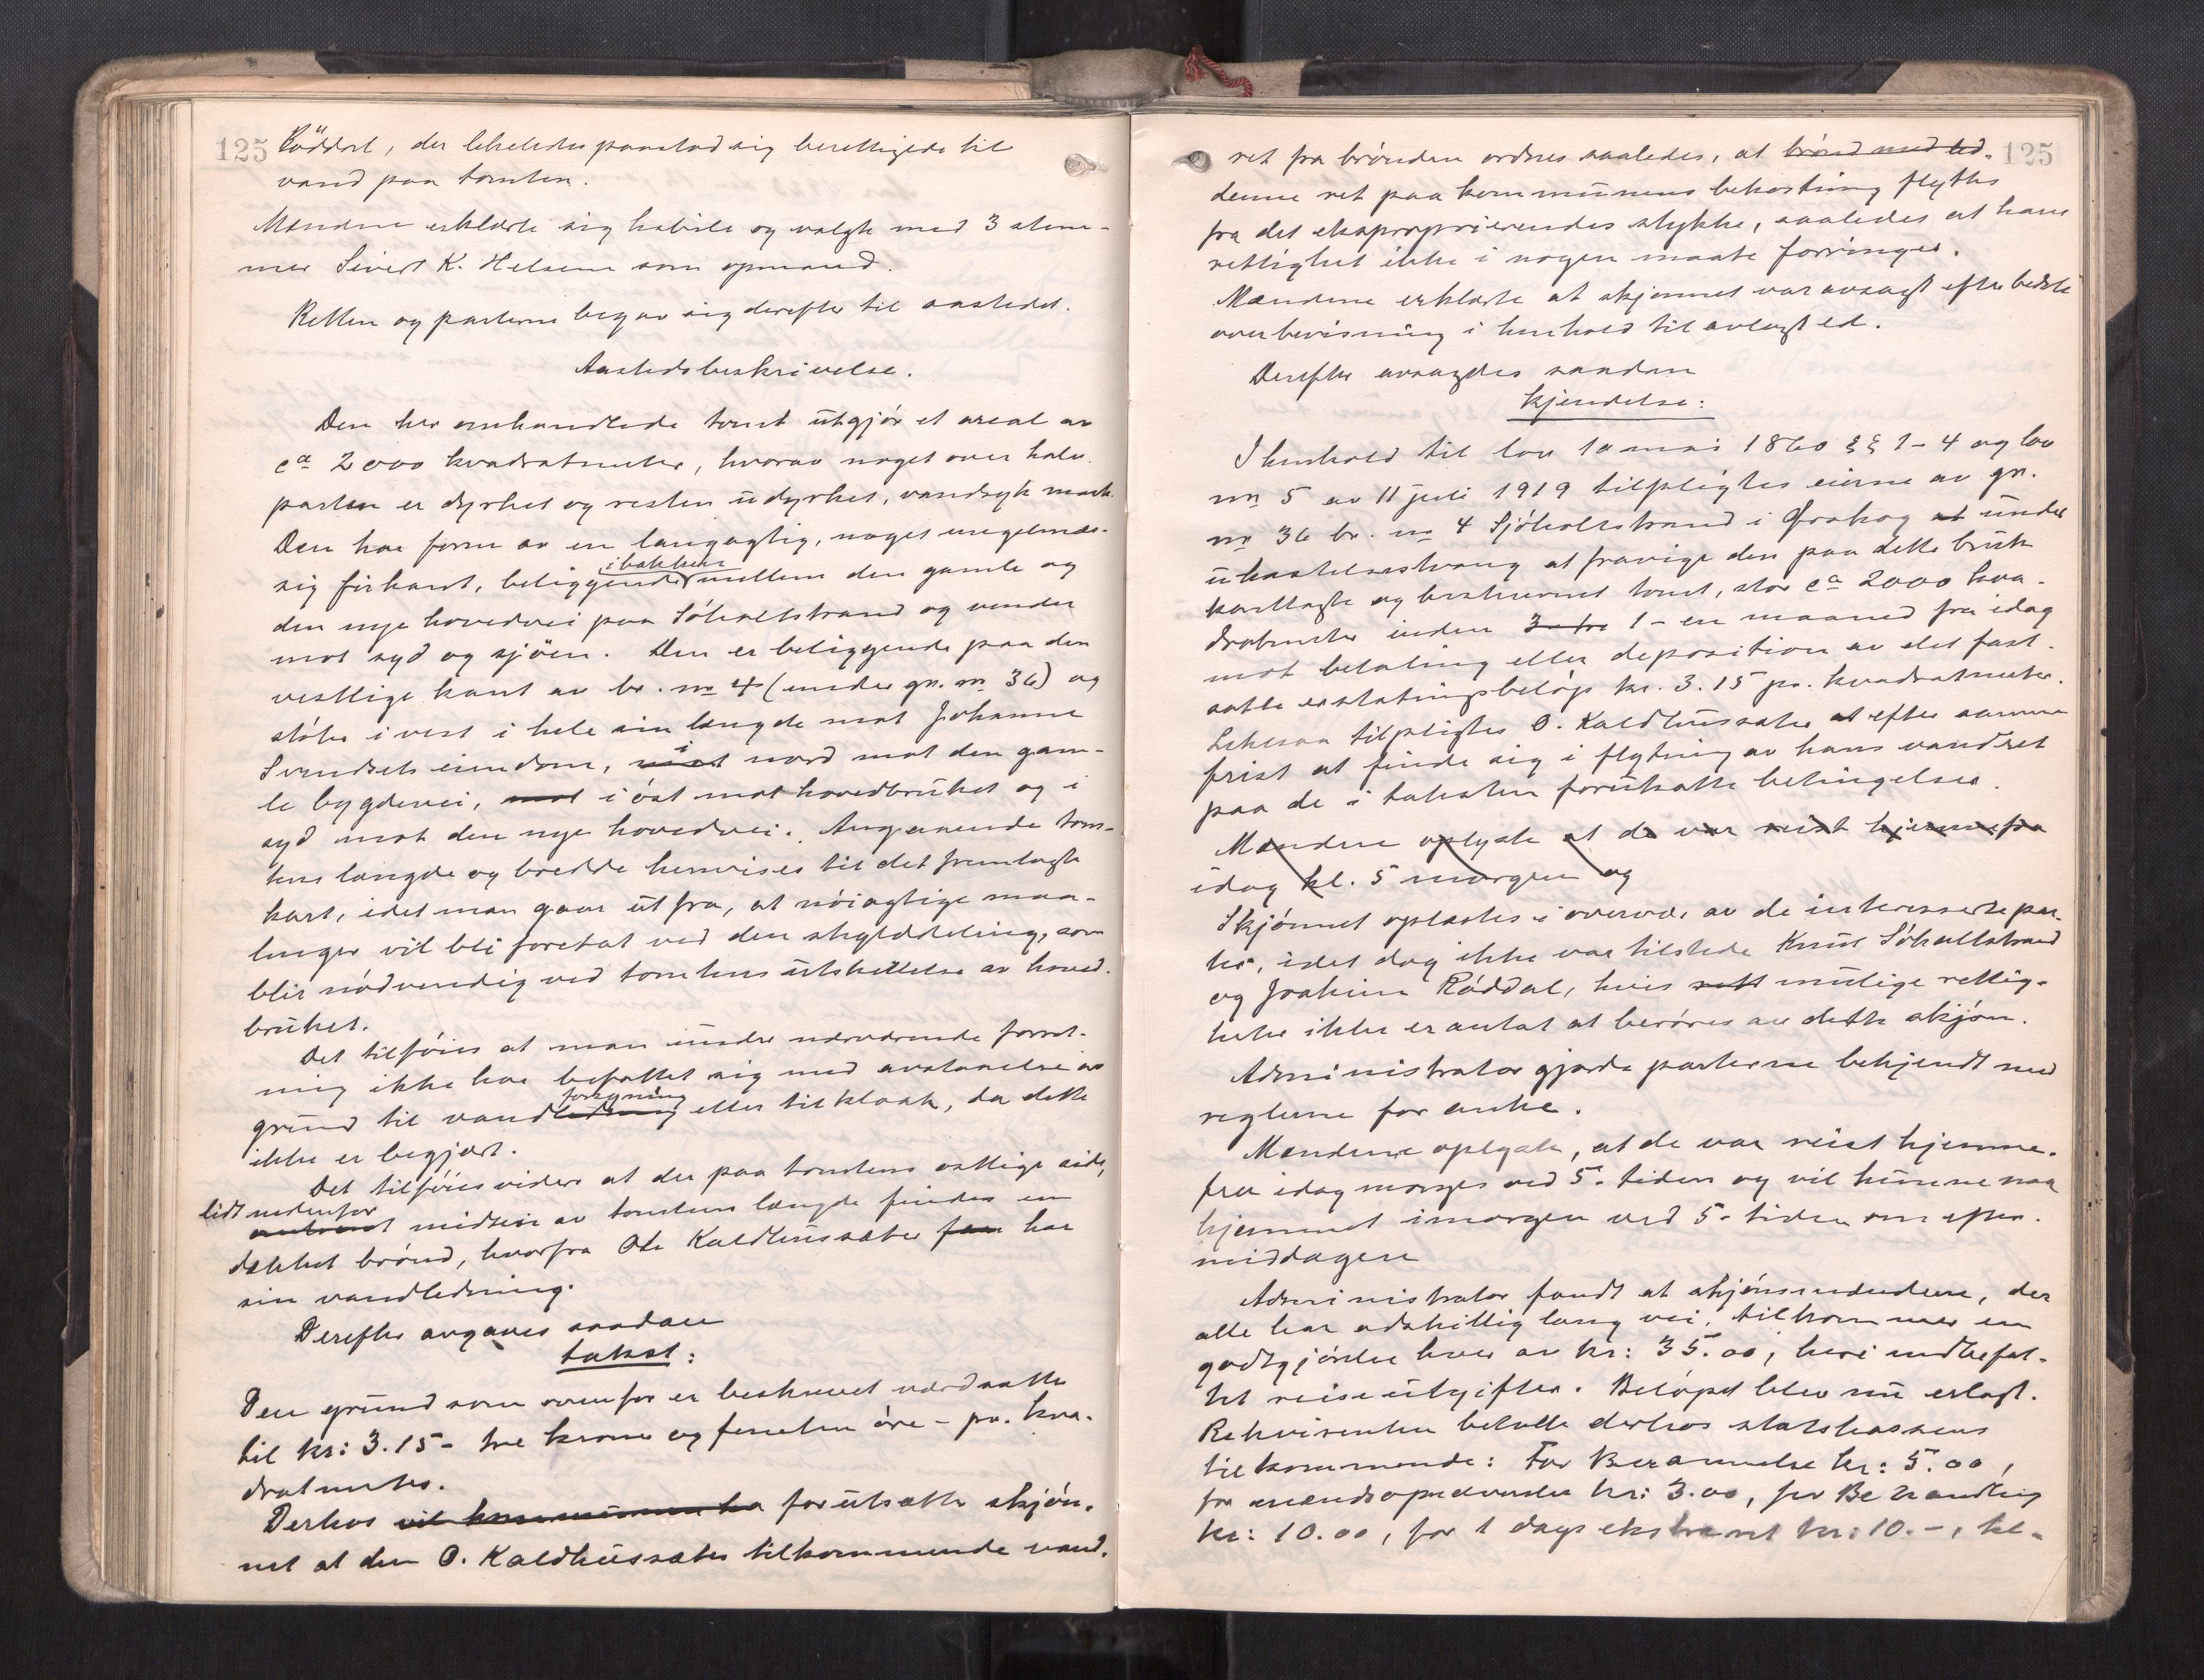 125
Röddal, der likeledes paastod sig berettigede til
vand paa tomten.
Mændene erklærte sig habile og valgte med 3 stem-
mer Sivert K. Helsem som opmand.
Retten og parterne begav sig derefter til aastedet.
Aastedsbeskrivelse.
Den her omhandlede tomt utgjør et areal av
ca 2000 kvadratmeter, hvorav noget over halv-
parten er dyrket og resten udyrket, vandsyk mark.
Den har form av en langagtig, noget uregelmæs-
i bakken
sig firkant, beliggende mellem den gamle og
den nye hovedvei paa Søholtstrand og vender
mot syd og sjöen. Den er beliggende paa den
vestlige kant av br. no 4 (under gn. no 36) og
støter i vest i hele sin længde mot Johanne
Svendsets eiendom, mot i nord mot den gam-
le bygdevei, mot i öst mot hovedbruket og i
syd mot den nye hovedvei. Angaaende tom-
tens længde og bredde henvises til det fremlagte
kart, idet man gaar ut fra, at nöiagtige maa-
linger vil bli foretat ved den skylddeling, som
blir nödvendig ved tomtens utskillelse av hoved-
bruket.
Det tilföies at man under nærværende forret-
ning ikke har befattet sig med avstaaelse av
forsyning
grund til vandledning eller til kloak, da dette
ikke er begjært.
Det tilföies videre at der paa tomtens østlige side,
lidt nedenfor
omtrent midten av tomtens længde findes en
dækket brönd, hvorfra Ole Kaldhussæter faar har
sin vandledning.
Derefter avgaves saadan
takst:
Den grund som ovenfor er beskrevet værdsattes
til kr: 3.15 - tre kroner og femten øre - pr. kva-
dratmeter.
Derhos vil kommunen ha forutsætter skjøn-
net at den O. Kaldhussæter tilkommende vand-
125
ret fra brönden ordnes saaledes, at brönd med led-
denne ret paa kommunens bekostning flyttes
fra det eksproprierendes stykke, saaledes at hans
rettighet ikke i nogen maate forringes.
Mændene erklærte at skjønnet var avsagt efter bedste
overbevisning i henhold til avlagt ed.
Derefter avsagdes saadan
kjendelse:
I henhold til lov 1ste mai 1860 §§ 1-4 og lov
no 5 av 11 juli 1919 tilpligtes eierne av gn.
no 36 br. no 4 Sjøholtstrand i Ørskog at under
utkastelsestvang at fravige den paa dette bruk
kartlagte og beskrevne tomt, stor ca 2000 kva-
dratmeter inden 3 - tre 1 - en maaned fra idag
mot betaling eller deposition av det fast-
satte erstatningsbeløp kr. 3.15 pr. kvadratmeter.
Likesaa tilpligtes O. Kaldhussæter at efter samme
frist at finde sig i flytning av hans vandret
paa de i taksten forutsatte betingelser.
Mændene oplyste at de var reist hjemmefra
idag kl. 5 morgen og
Skjönnet oplæstes i overvær av de interesserte par-
ter, idet dog ikke var tilstede Knut Söholtstrand
og Joakim Röddal, hvis rett mulige rettig-
heter ikke er antat at berøres av dette skjön.
Administrator gjorde parterne bekjendt med
reglerne for anke.
Mændene oplyste, at de var reist hjemme-
fra idag morges ved 5-tiden og vil kunne naa
hjemmet imorgen ved 5-tiden om efter-
middagen
Administrator fandt at skjönsmændene, der
alle har adskillig lang vei, tilkommer en
godtgjörelse hver av kr: 35.00, heri indbefat-
tet reiseutgifter. Beløpet blev nu erlagt.
Rekvirenten betalte derhos statskassens
tilkommende: For Berammelse kr: 5.00,
for mændsopnævnelse kr: 3.00, for Behandling
kr: 10.00, for 1 dags ekstraret kr: 10.-, til-